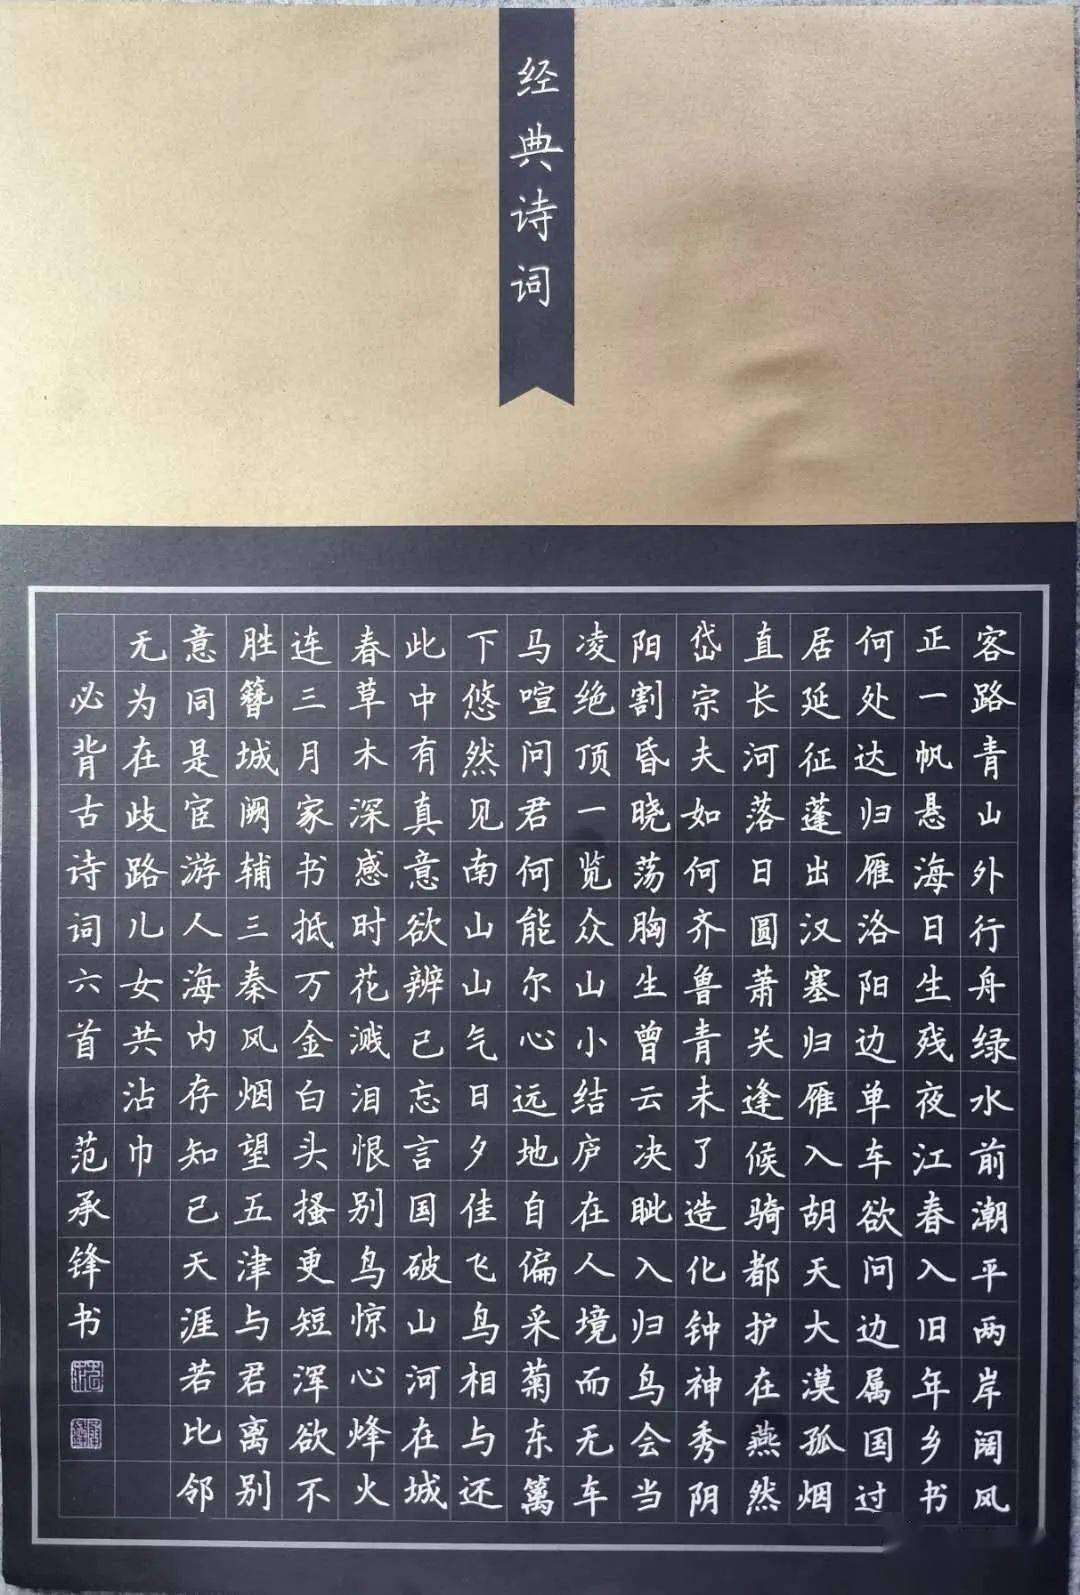 经典诗词
客路青山外行舟绿水前潮平两岸阔风
正一帆悬海日生残夜江春入旧年乡书
何处达归雁洛阳边单车欲问边属国过
居延征蓬出汉塞归雁入胡天大漠孤烟
直长河落日圆萧关逢候骑都护在燕然
岱宗夫如何齐鲁青未了造化钟神秀阴
阳割昏晓荡胸生曾云决眦入归鸟会当
凌绝顶一览众山小结庐在人境而无车
马喧问君何能尔心远地自偏采菊东篱
下悠然见南山山气日夕佳飞鸟相与还
此中有真意欲辨已忘言国破山河在城
春草木深感时花溅泪恨别鸟惊心烽火
连三月家书抵万金白头搔更短浑欲不
胜簪城阙辅三秦风烟望五津与君离别
意同是宦游人海内存知己天涯若比邻
无为在歧路儿女共沾巾
必背古诗词六首 范承锋书